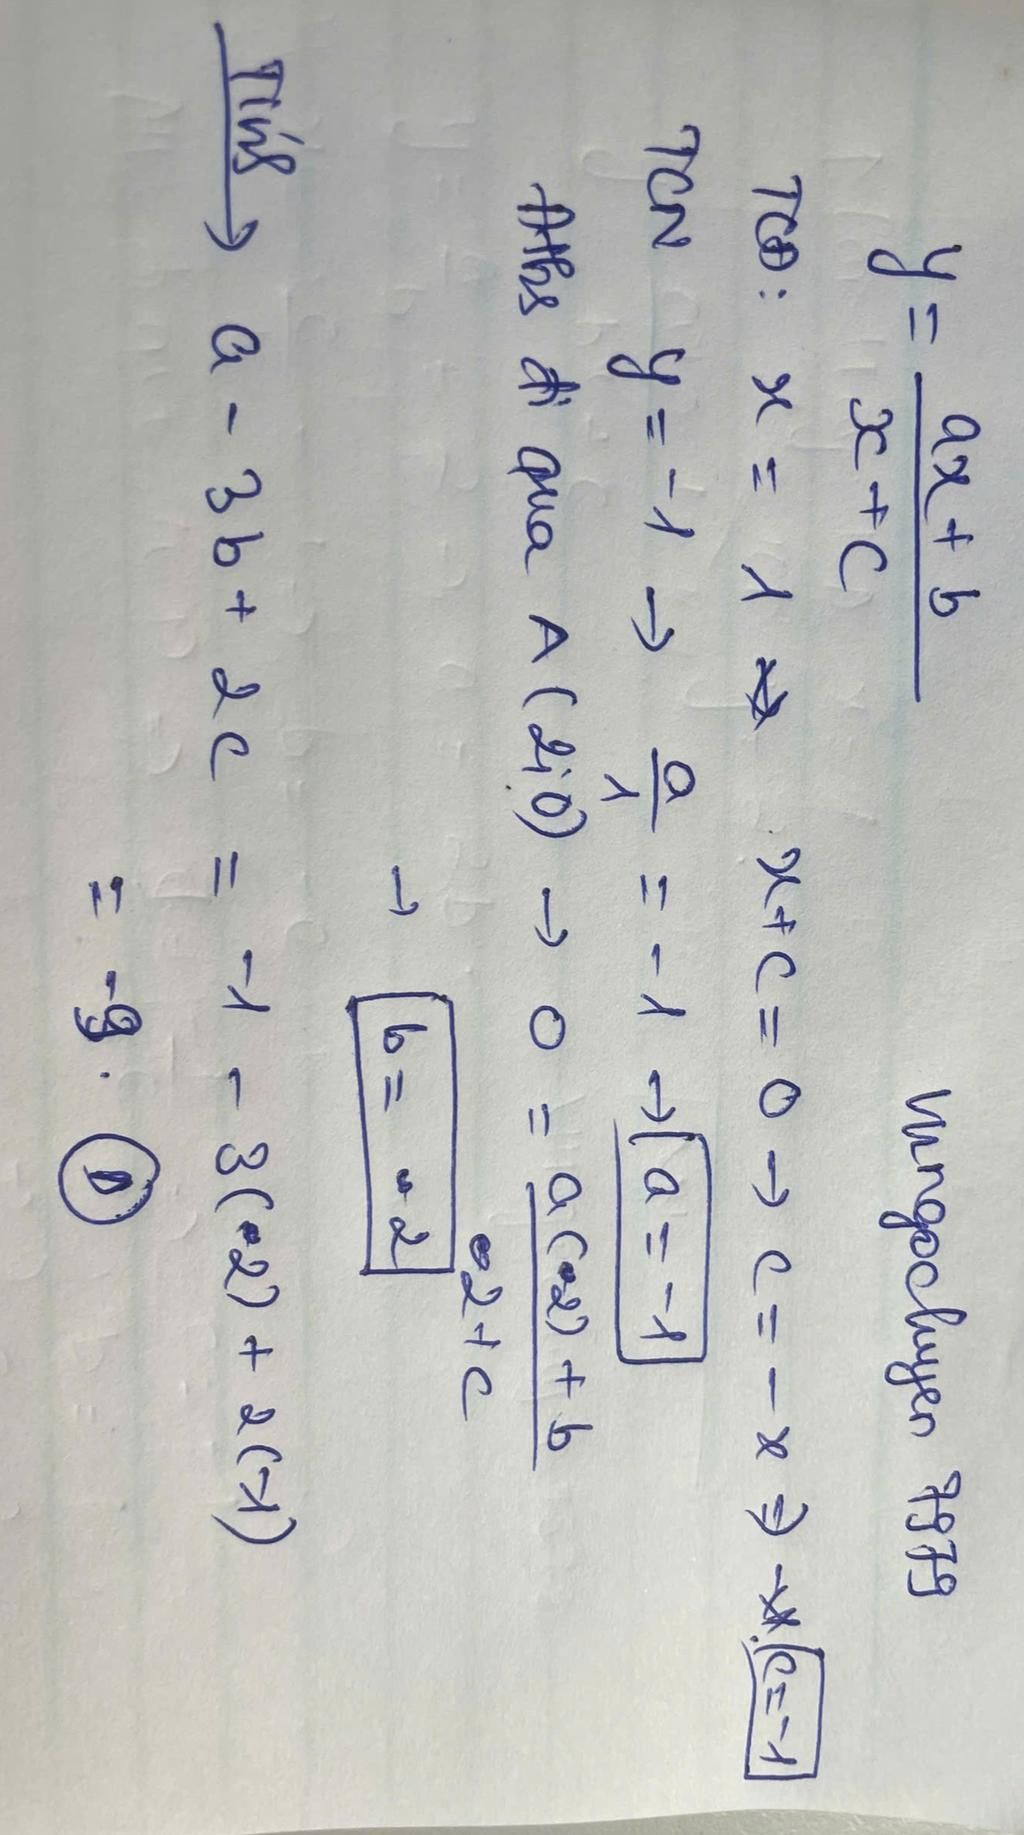 y = \frac{ax + b}{x + c} mngochuyen 7979
TCĐ: x = 1 → x + c = 0 → c = -x ⇒ c = -1
TCN y = -1 → \frac{a}{1} = -1 → a = -1
đths đi qua A (2;0) → 0 = \frac{a(-2) + b}{-2 + c}
→ b = -2
Tính → a - 3b + 2c = -1 - 3(-2) + 2(-1)
= -9. D